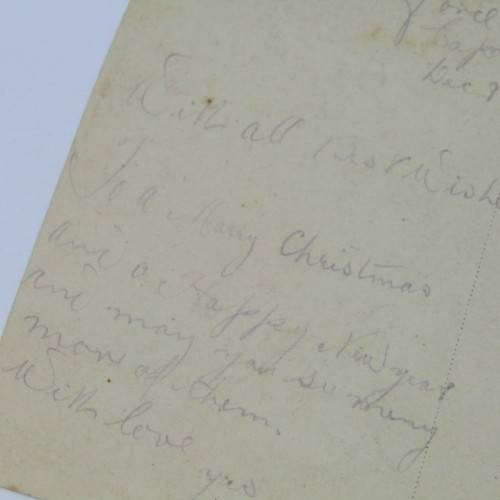 Dec 9
With all Best Wishe
To a Merry Christmas
and a Happy New year
and may you se meny
more of them.
With love
yrs